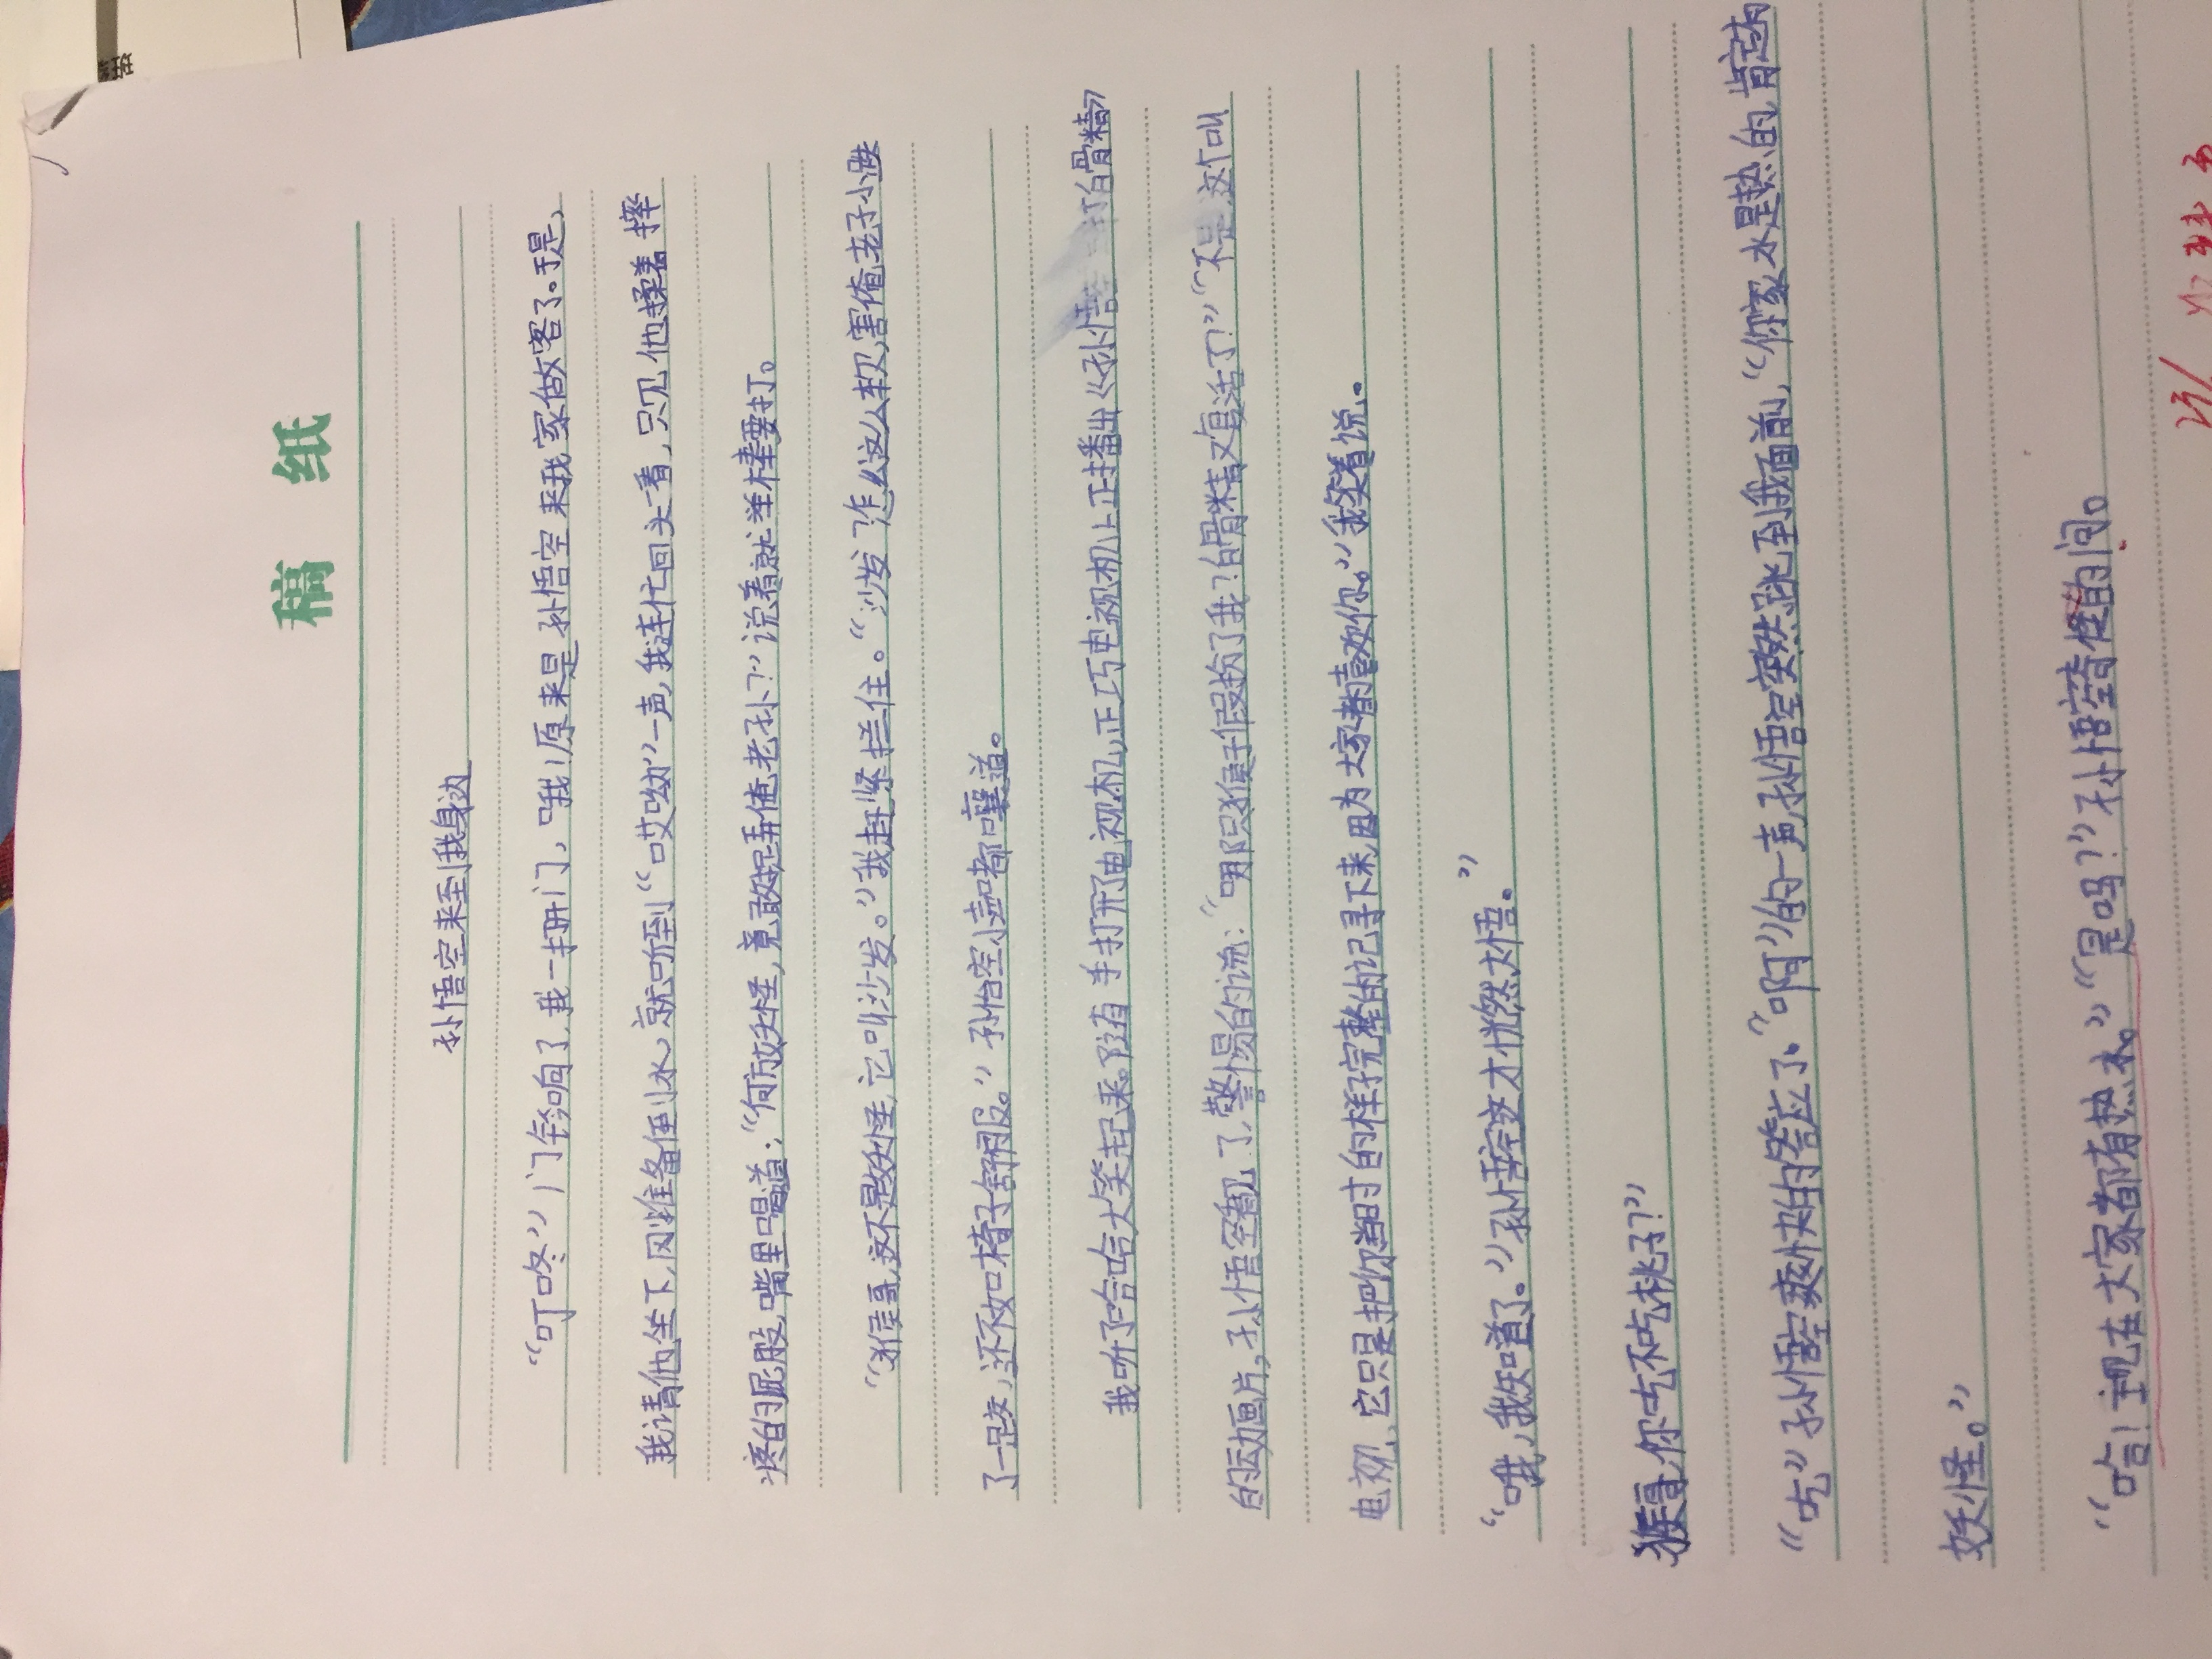 稿 纸
孙悟空来到我身边
“叮咚”门铃响了,我一开门,哦!原来是孙悟空来我家做客了。于是,
我请他坐下,刚准备倒水,就听到“哎呦”一声,我连忙回头一看,只见他揉着摔
疼的屁股,嘴里喝道:“何方妖怪,竟敢捉弄俺老孙?”说着就举棒要打。
“猴哥,这不是妖怪,它叫沙发。”我赶紧拦住。“沙发?怎么这么软,害俺老子小跌
了一跤,还不如椅子舒服。”孙悟空小声嘟囔道。
我听了哈哈大笑起来。随有手打开电视机,正巧电视机上正播出《孙悟空三打白骨精》
的动画片,孙悟空看见了,警惕的说:“哪只猴子假扮了我?白骨精又复活了?”“不是,这个叫
电视,它只是把你当时的样子完整的记录下来,因为大家都喜欢你。”我笑着说。
“哦,我知道了。”孙悟空这才恍然大悟。”
猴哥,你吃不吃桃子?”
“吃”孙悟空爽快的答应了。“啊”的一声,孙悟空突然跳到我面前,“你家水是热的,肯定有
妖怪。”
“哈!现在大家都有热水。”“是吗?”孙悟空奇怪的问。